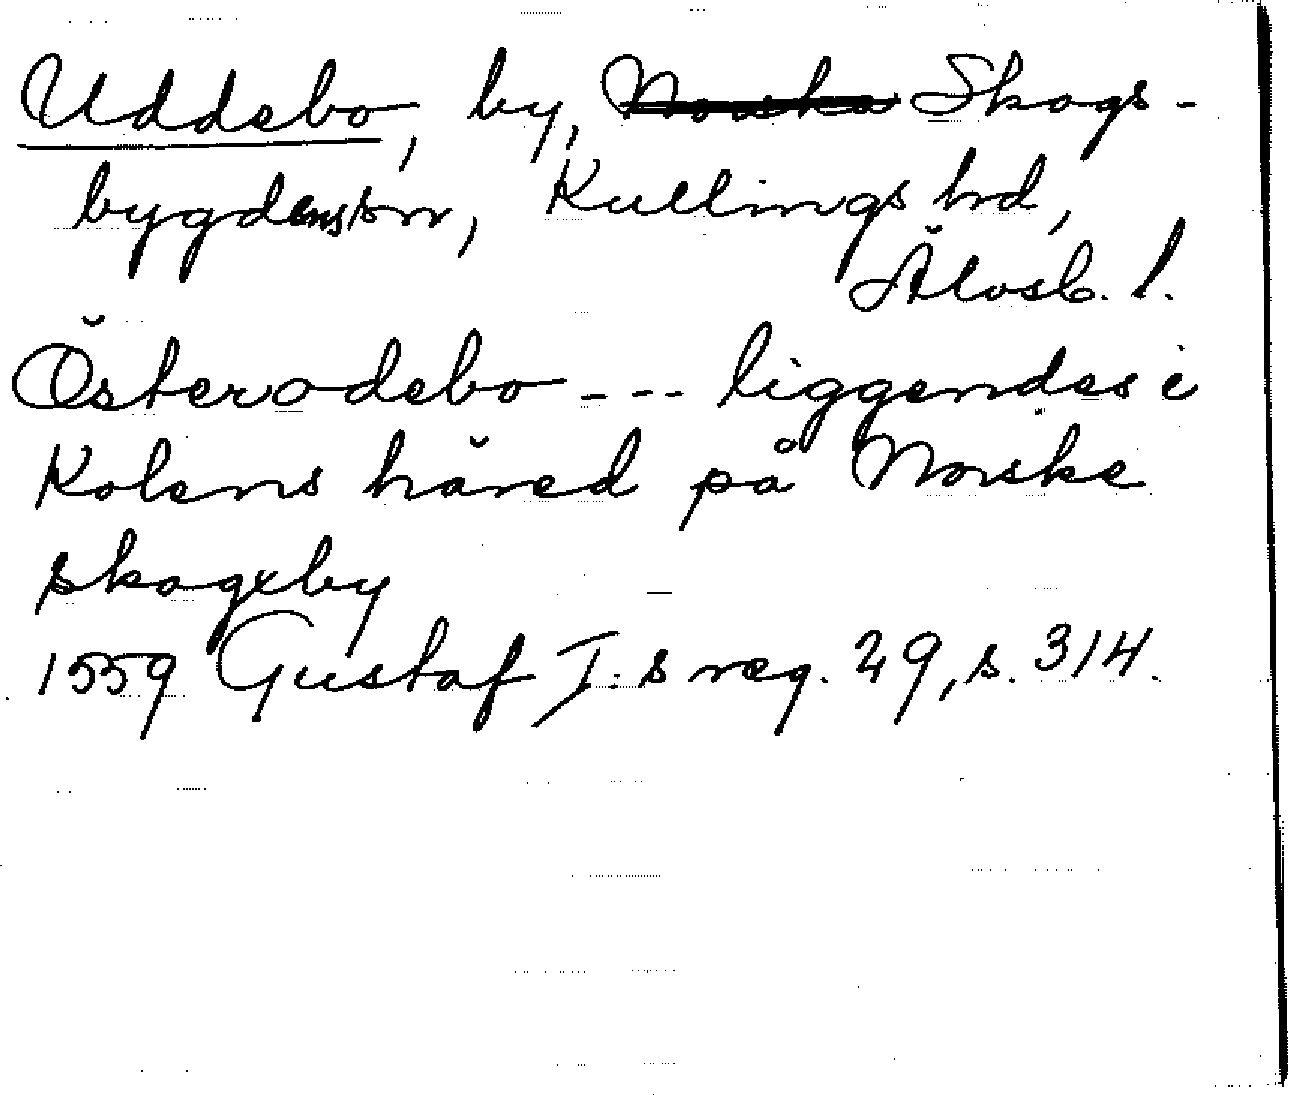 Uddebo, by, Norska Skogs-
bygdens sn, Kullings hd,
Älvsb. l.
Österodebo --- liggendes i
Kolens häred på Norske
skogxby
1559 Gustaf I:s reg. 29, s. 314.